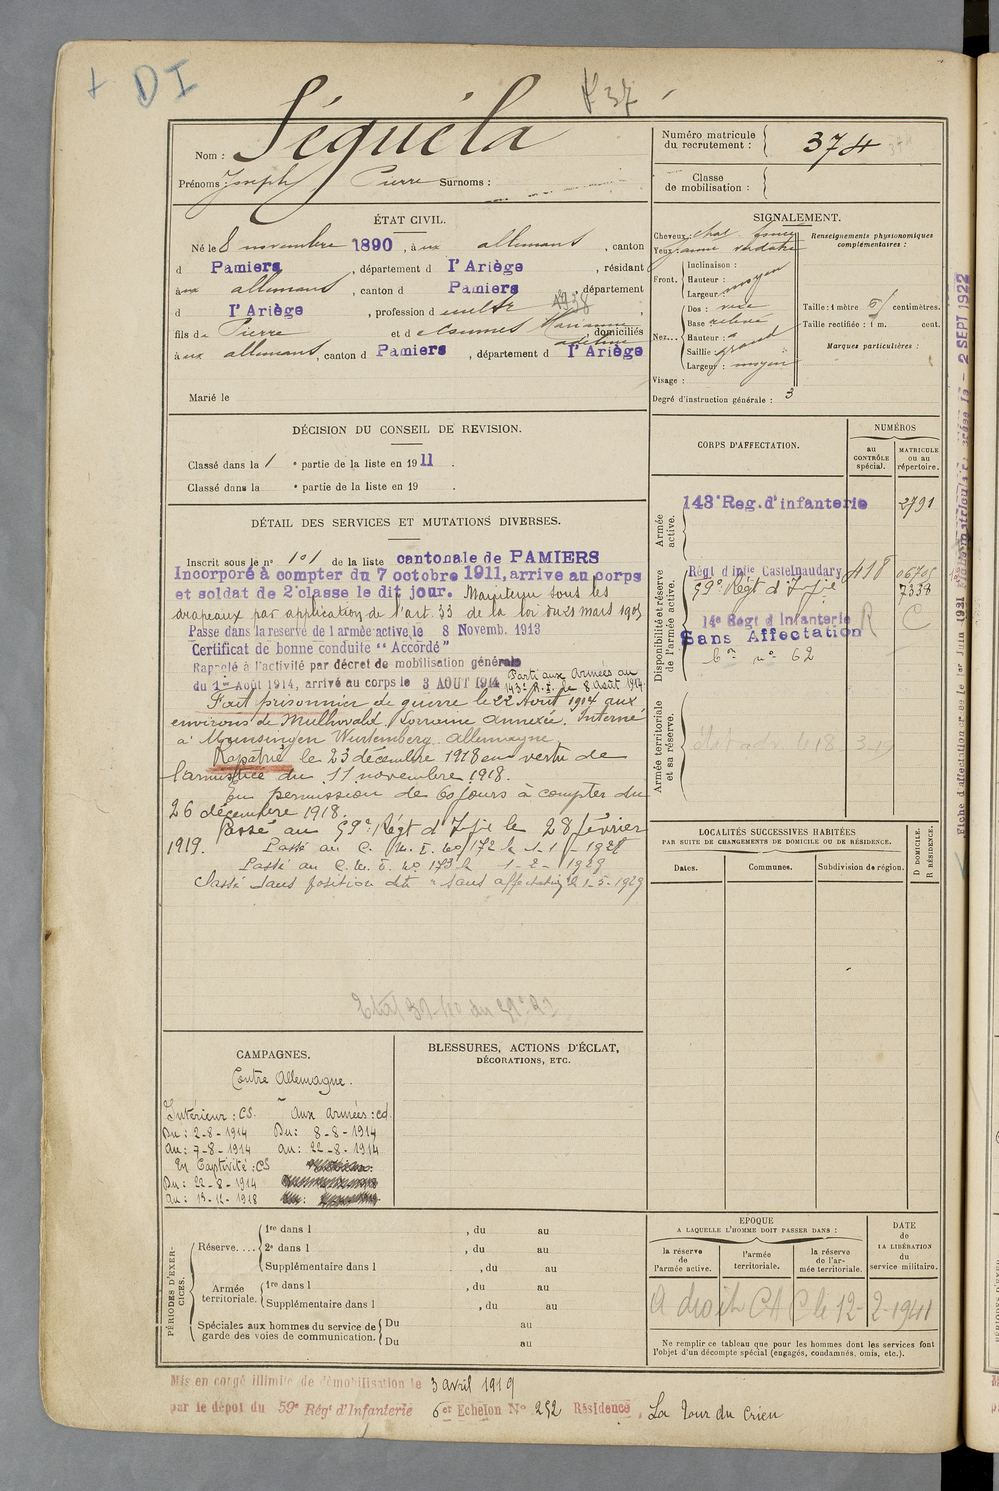 + DI
37
Nom : Séguéla
Prénoms : Joseph Pierre Surnoms :
Numéro matricule du recrutement : 374
Classe de mobilisation :
ÉTAT CIVIL.
Né le 8 novembre 1890, à ux allemans, canton
d Pamiers, département d l'Ariège, résidant
à ux allemans, canton d Pamiers, département
d l'Ariège, profession d cultr
fils de Pierre et de Marianne, domiciliés
à ux allemans, canton d Pamiers, département d l'Ariège
Marié le
SIGNALEMENT.
Cheveux : chat foncé
Yeux : jaune verdâtre
Front. Inclinaison :
Hauteur : moyen
Largeur :
Nez... Dos :
Base : relevé
Hauteur :
Saillie : grand
Largeur : moyen
Visage :
Degré d'instruction générale : 3
Renseignements physionomiques complémentaires :
Taille : 1 mètre centimètres.
Taille rectifiée : 1 m. cent.
Marques particulières :
DÉCISION DU CONSEIL DE REVISION.
Classé dans la 1 e partie de la liste en 1911.
Classé dans la e partie de la liste en 19 .
CORPS D'AFFECTATION.
NUMÉROS
au CONTRÔLE spécial.
MATRICULE ou au répertoire.
Armée active.
143e Reg. d'infanterie 2791
Disponibilité et réserve de l'armée active.
Régt d'Infie Castelnaudary 418
59e Régt d'Infie 7338
14e Regt d'Infanterie R C
Sans Affectation
no 62
Armée territoriale et sa réserve.
DÉTAIL DES SERVICES ET MUTATIONS DIVERSES.
Inscrit sous le no 101 de la liste cantonale de PAMIERS
Incorporé à compter du 7 octobre 1911, arrive au corps
et soldat de 2e classe le dit jour. Maintenu sous les
drapeaux par application de l'art. 33 de la loi du 21 mars 1905
Passe dans la reserve de l'armée active, le 8 Novemb. 1913
Certificat de bonne conduite "Accordé"
Rappelé à l'activité par décret de mobilisation générale
du 1er Août 1914, arrivé au corps le 3 AOUT 1914 Parti aux Armées au
143e R.I. le 8 Août 1914.
Fait prisonnier de guerre le 22 Août 1914 aux
environs de Mulhwald Lorraine annexée. Interné
à Munsingen Wurtemberg Allemagne
Rapatrié le 23 décembre 1918 en vertu de
l'armistice du 11 novembre 1918.
En permission de 60 jours à compter du
26 décembre 1918.
Passé au 59e Régt d'Infie le 28 février
1919. Passé au C. M. I. no 172 le 1-1-1928
Passé au C. M. I. no 173 le 1-2-1929
Classé sans position dit "sans affectation" le 1-5-1929
LOCALITÉS SUCCESSIVES HABITÉES
PAR SUITE DE CHANGEMENTS DE DOMICILE OU DE RÉSIDENCE.
Dates. Communes. Subdivision de région. D DOMICILE. R RÉSIDENCE.
CAMPAGNES.
Contre Allemagne.
Intérieur : CS. Aux armées : cd.
Du : 2-8-1914 Du : 8-8-1914
Au : 7-8-1914 Au : 22-8-1914
En Captivité : CS
Du : 22-8-1914
BLESSURES, ACTIONS D'ÉCLAT,
DÉCORATIONS, ETC.
PÉRIODES D'EXERCICES.
Réserve.... 1re dans l , du au
2e dans l , du au
Supplémentaire dans l , du au
Armée territoriale. 1re dans l , du au
Supplémentaire dans l , du au
Spéciales aux hommes du service de garde des voies de communication. Du au
Du au
EPOQUE
A LAQUELLE L'HOMME DOIT PASSER DANS :
la réserve de l'armée active.
l'armée territoriale.
la réserve de l'armée territoriale.
DATE de LA LIBÉRATION du service militaire.
A droit CAC le 12-2-1941
Ne remplir ce tableau que pour les hommes dont les services font
l'objet d'un décompte spécial (engagés, condamnés, omis, etc.).
Mis en congé illimité de démobilisation le 3 avril 1919
par le dépôt du 59e Régt d'Infanterie 6er Echelon No 252 Résidence, La Tour du Crieu
2 SEPT 1922